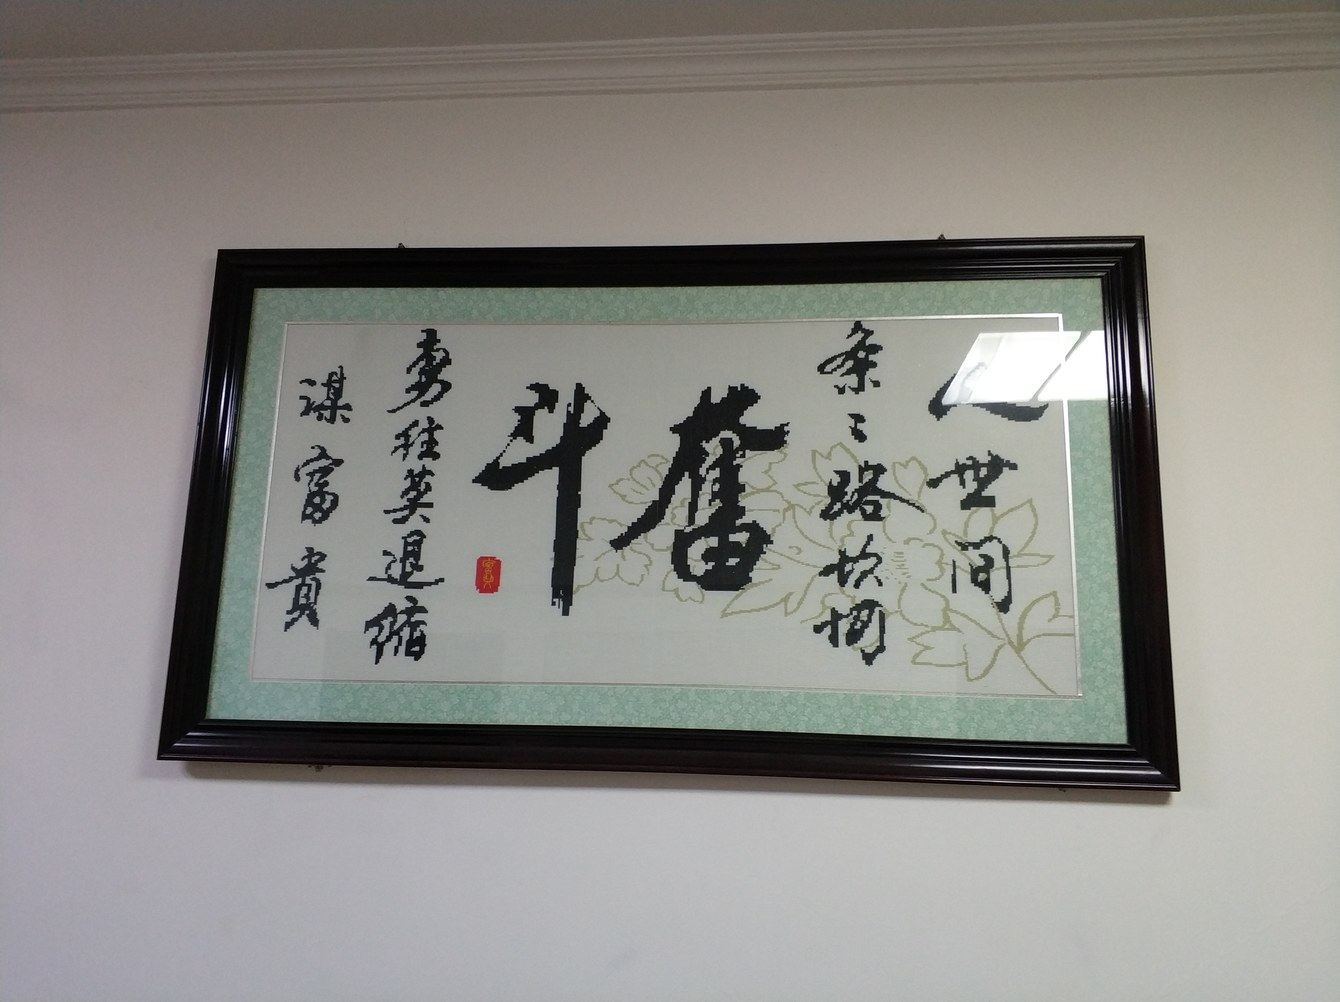 人世间
条々路坎坷
奮斗
勇往莫退縮
谋富貴